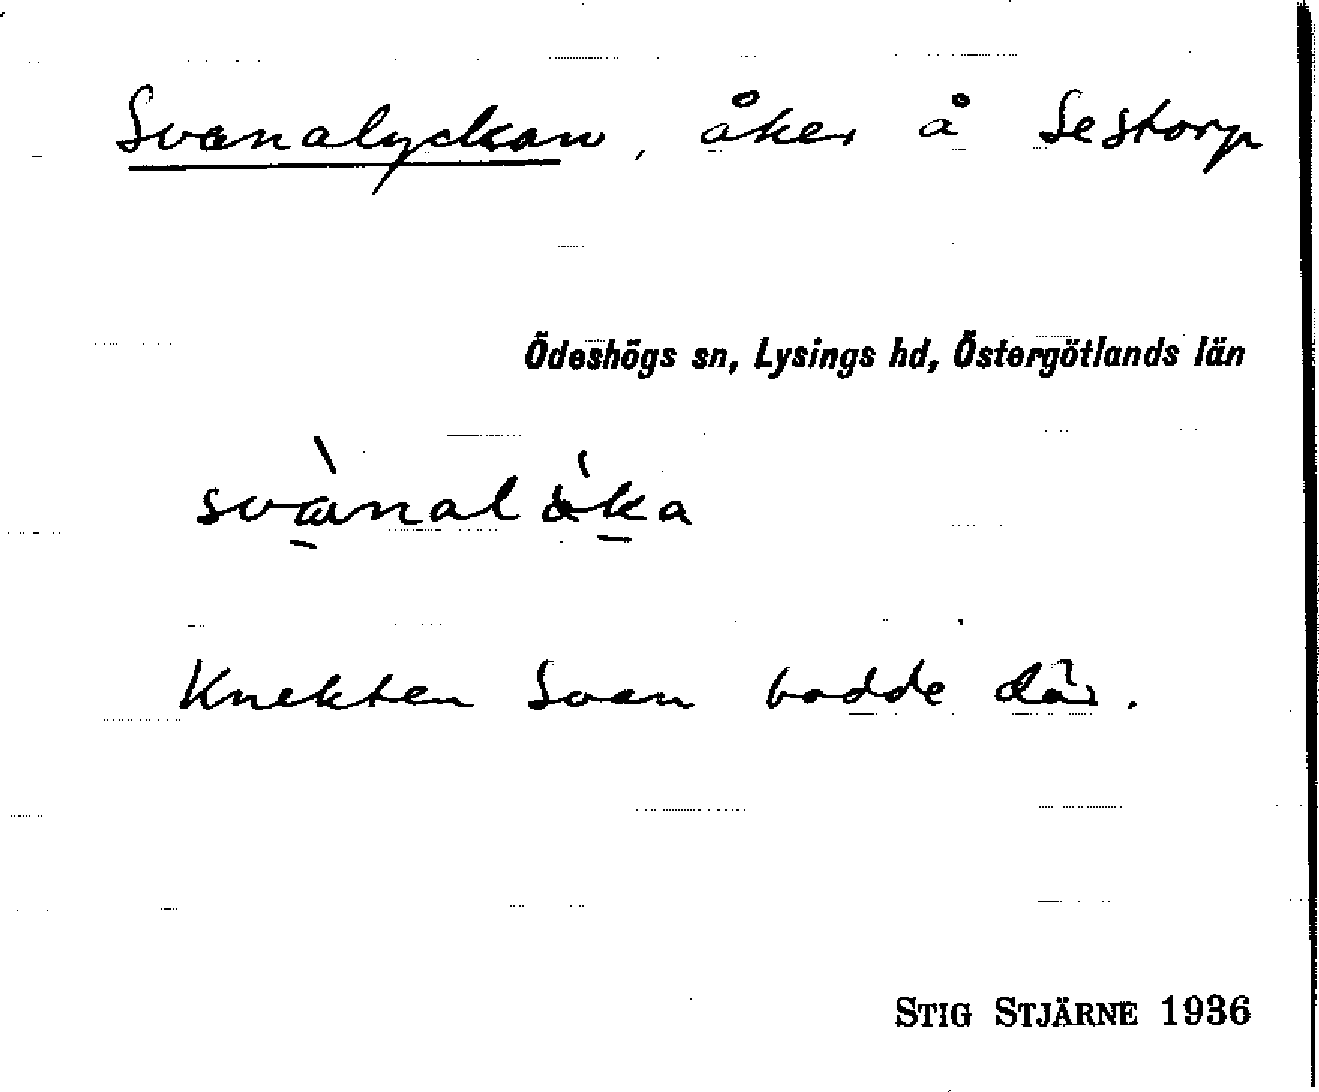 Svanalyckan, åker å Sestorp
Ödeshögs sn, Lysings hd, Östergötlands län
Knekten Svan bodde där.
STIG STJÄRNE 1936